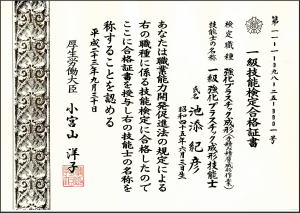 一級技能検定合格証書
検定職種 強化プラスチック成形(手積み積層成形作業)
技能士の名称 一級強化プラスチック成形技能士
氏名 池添 紀彦
昭和四十五年六月三日生
あなたは職業能力開発促進法の規定による
右の職種に係る技能検定に合格したので
ここに合格証書を授与し右の技能士の名称を
称することを認める
平成二十三年九月三十日
厚生労働大臣 小宮山 洋子